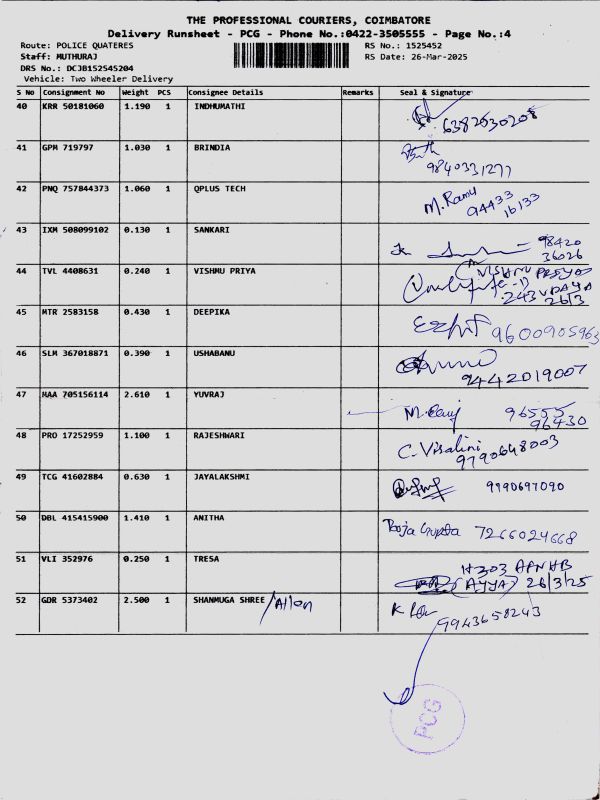 THE PROFESSIONAL COURIERS, COIMBATORE
Delivery Runsheet - PCG - Phone No.:0422-3505555 - Page No.:4
Route: POLICE QUATERES RS No.: 1525452
Staff: MUTHURAJ RS Date: 26-Mar-2025
DRS No.: DCJB152545204
Vehicle: Two Wheeler Delivery
S No Consignment No Weight PCS Consignee Details Remarks Seal & Signature
40 KRR 50181060 1.190 1 INDHUMATHI 6382530208
41 GPM 719797 1.030 1 BRINDIA
9840331277
42 PNQ 757844373 1.060 1 QPLUS TECH M.Ramu
94433
16133
43 IXM 508099102 0.130 1 SANKARI 98420
36026
44 TVL 4408631 0.240 1 VISHNU PRIYA VISHNU PRIYA
243 UDAYA
26/3
45 MTR 2583158 0.430 1 DEEPIKA 9600905963
46 SLM 367018871 0.390 1 USHABANU
9442019007
47 MAA 705156114 2.610 1 YUVRAJ 96555
96430
48 PRO 17252959 1.100 1 RAJESHWARI C. Visalini
9790648003
49 TCG 41602884 0.630 1 JAYALAKSHMI 9190697090
50 DBL 415415900 1.410 1 ANITHA Pooja Gupta 7266024668
51 VLI 352976 0.250 1 TRESA H303 APNHB
(AYYA) 26/3/25
52 GDR 5373402 2.500 1 SHANMUGA SHREE /Allon
9943658243
PCG